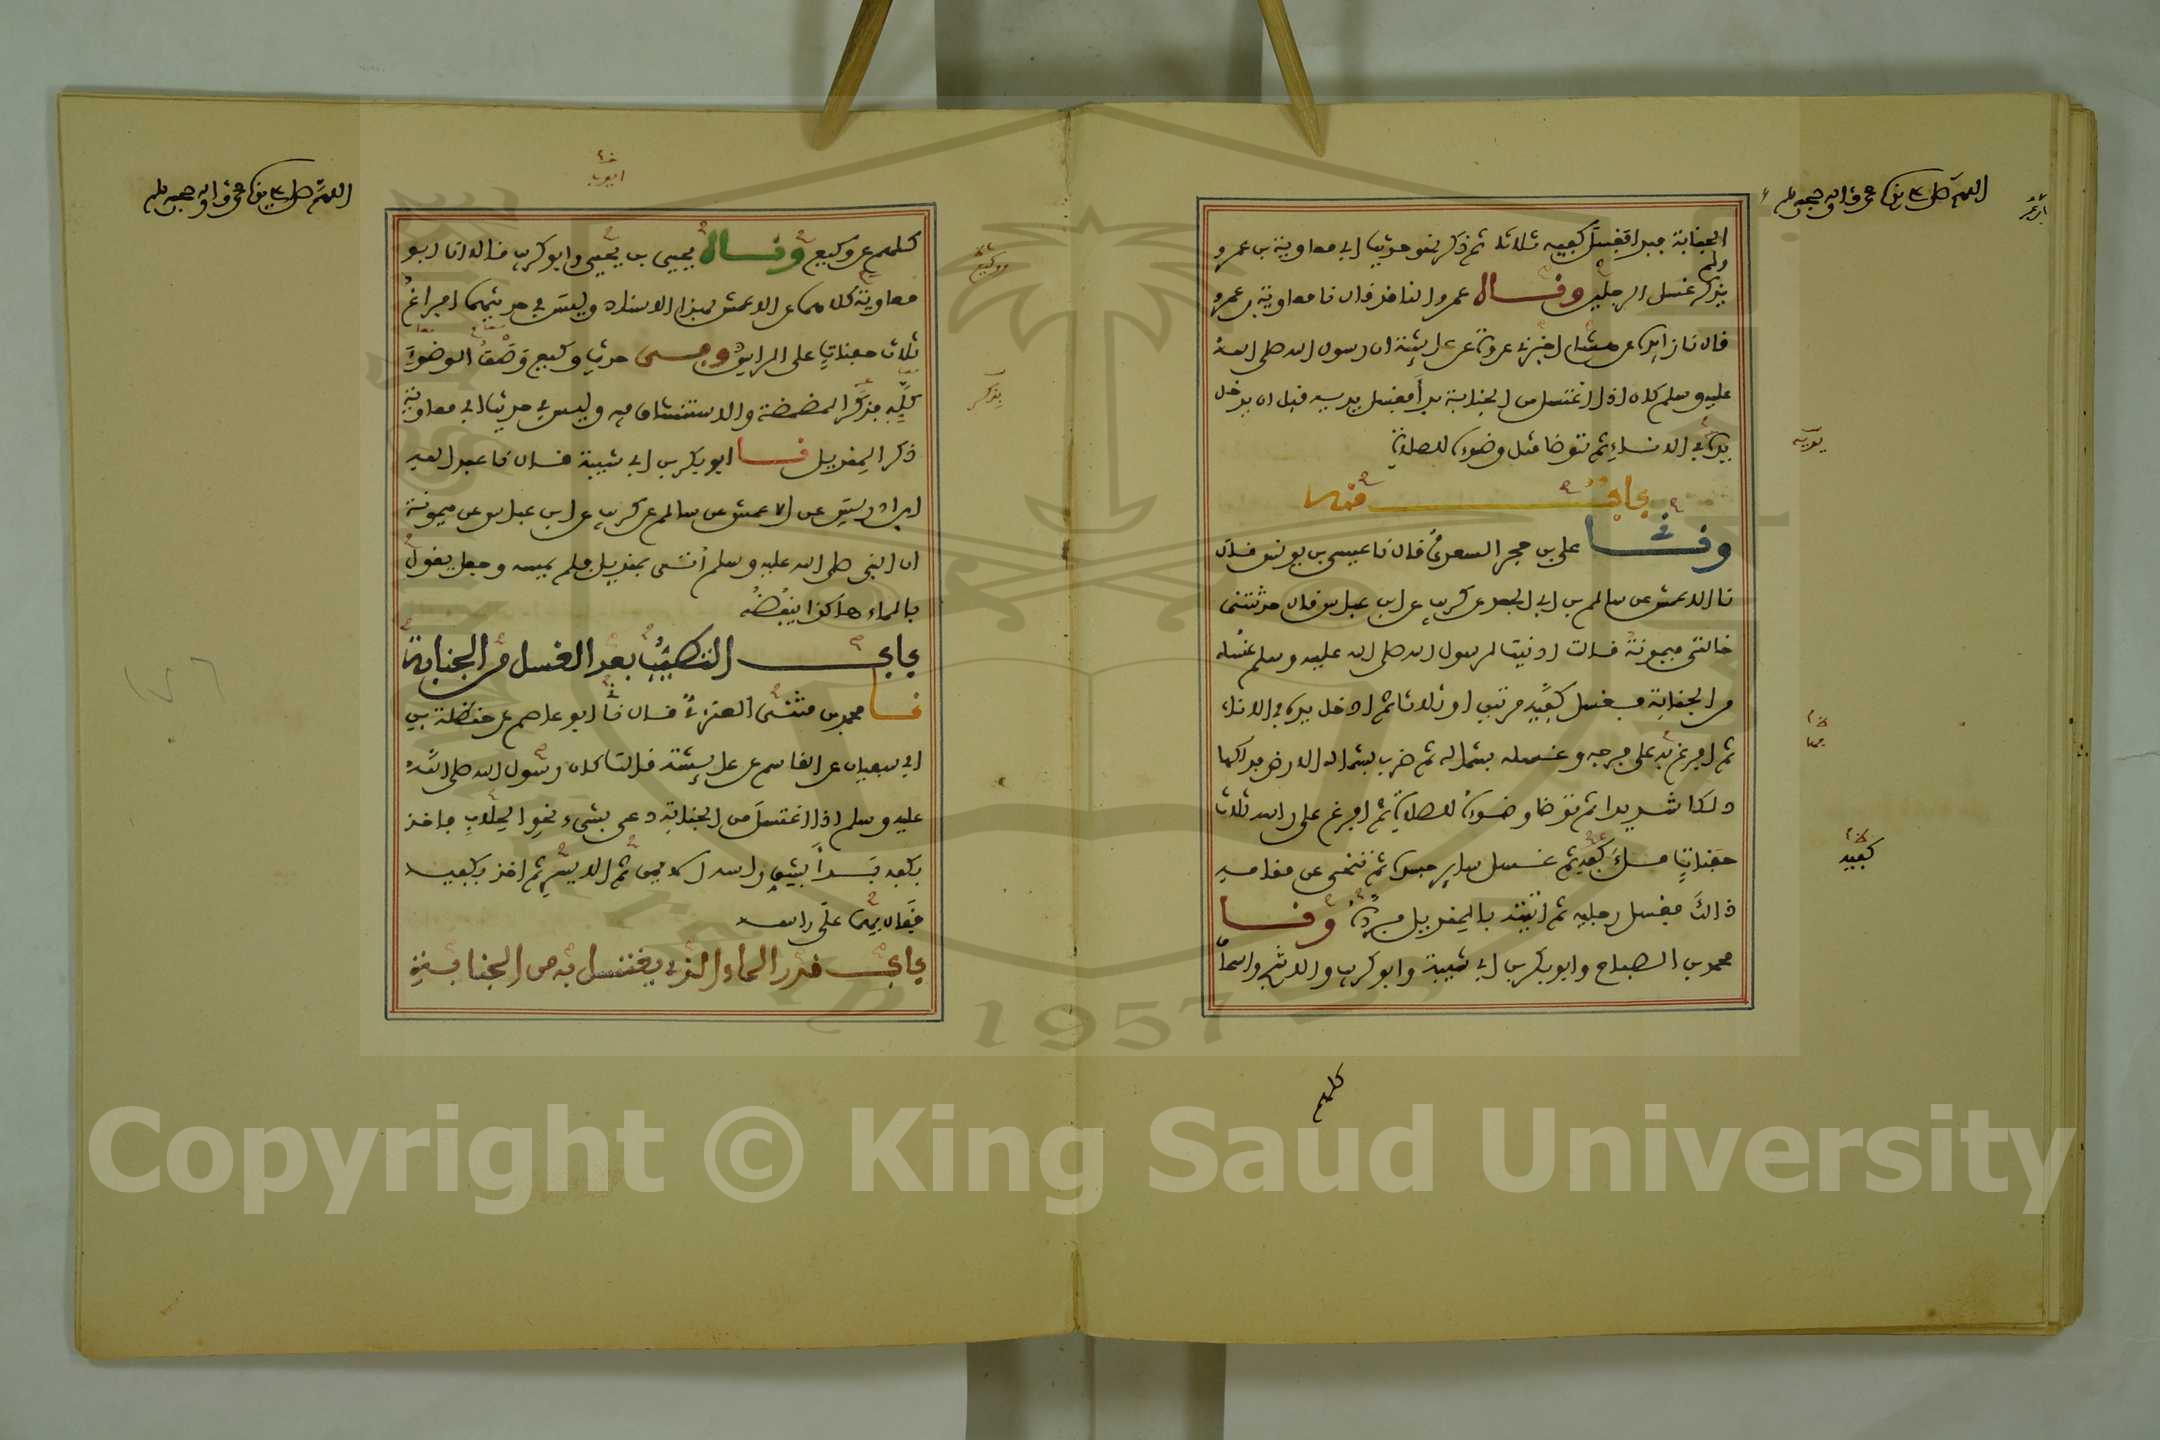 اللهم صل على سيدنا محمد وآله وصحبه وسلم
الجنابة فبدا فغسل كفيه ثلاثا ثم ذكر نحو حديث ابي معاوية بن عمرو
ولم
يذكر غسل الرجلين وقال عمرو الناقد قال نا معاوية بن عمرو
قال نا زايدة عن هشام اخبرني عروة عن عايشة ان رسول الله صلى الله
عليه وسلم كان اذا اغتسل من الجنابة بدأ فغسل يديه قبل ان يدخل
يده في الاناء ثم توضا مثل وضوءه للصلاة
باب منه
وثنا علي بن حجر السعدي قال نا عيسى بن يونس قال
نا الاعمش عن سالم بن ابي الجعد عن كريب عن ابن عباس قال حدثتني
خالتي ميمونة قالت ادنيت لرسول الله صلى الله عليه وسلم غسله
من الجنابة فغسل كفيه مرتين او ثلاثا ثم ادخل يده في الاناء
ثم افرغ به على فرجه وغسله بشماله ثم ضرب بشماله الارض فدلكها
دلكا شديدا ثم توضا وضوءه للصلاة ثم افرغ على راسه ثلاث
حفنات ملء كفه ثم غسل ساير جسده ثم تنحى عن مقامه
ذالك فغسل رجليه ثم اتيته بالمنديل فرده وثنا
محمد بن الصباح وابو بكر بن ابي شيبة وابو كريب والاشج واسحاق
يديه
كفيه
كلهم
اللهم صل على سيدنا محمد وآله وصحبه وسلم
ايوب
كلهم عن وكيع وثناه يحيى بن يحيى وابو كريب قالا انا ابو
معاوية كلاهما عن الاعمش بهذا الاسناد وليس في حديثهما افراغ
ثلاث حفنات على الراس وفي حديث وكيع وصف الوضوء
كله فذكر المضمضة والاستنشاق فيه وليس في حديث ابي معاوية
ذكر المنديل ثنا ابو بكر بن ابي شيبة قال نا عبد الله
ابن ادريس عن الاعمش عن سالم عن كريب عن ابن عباس عن ميمونة
ان النبي صلى الله عليه وسلم اتى بمنديل فلم يمسه وجعل يقول
بالماء هاكذا ينفضه
باب التطيب بعد الغسل من الجنابة
ثنا محمد بن مثنى العنزي قال ثنا ابو عاصم عن حنظلة بن
ابي سفيان عن القاسم عن عايشة قالت كان رسول الله صلى الله
عليه وسلم اذا اغتسل من الجنابة دعى بشيء نحو الحلاب فاخذ
بكفه بدأ بشق راسه الايمن ثم الايسر ثم اخذ بكفيه
فقال بهما على راسه
باب قدر الماء الذي يغتسل به من الجنابة
وكيع
يذكر
1957
Copyright © King Saud University